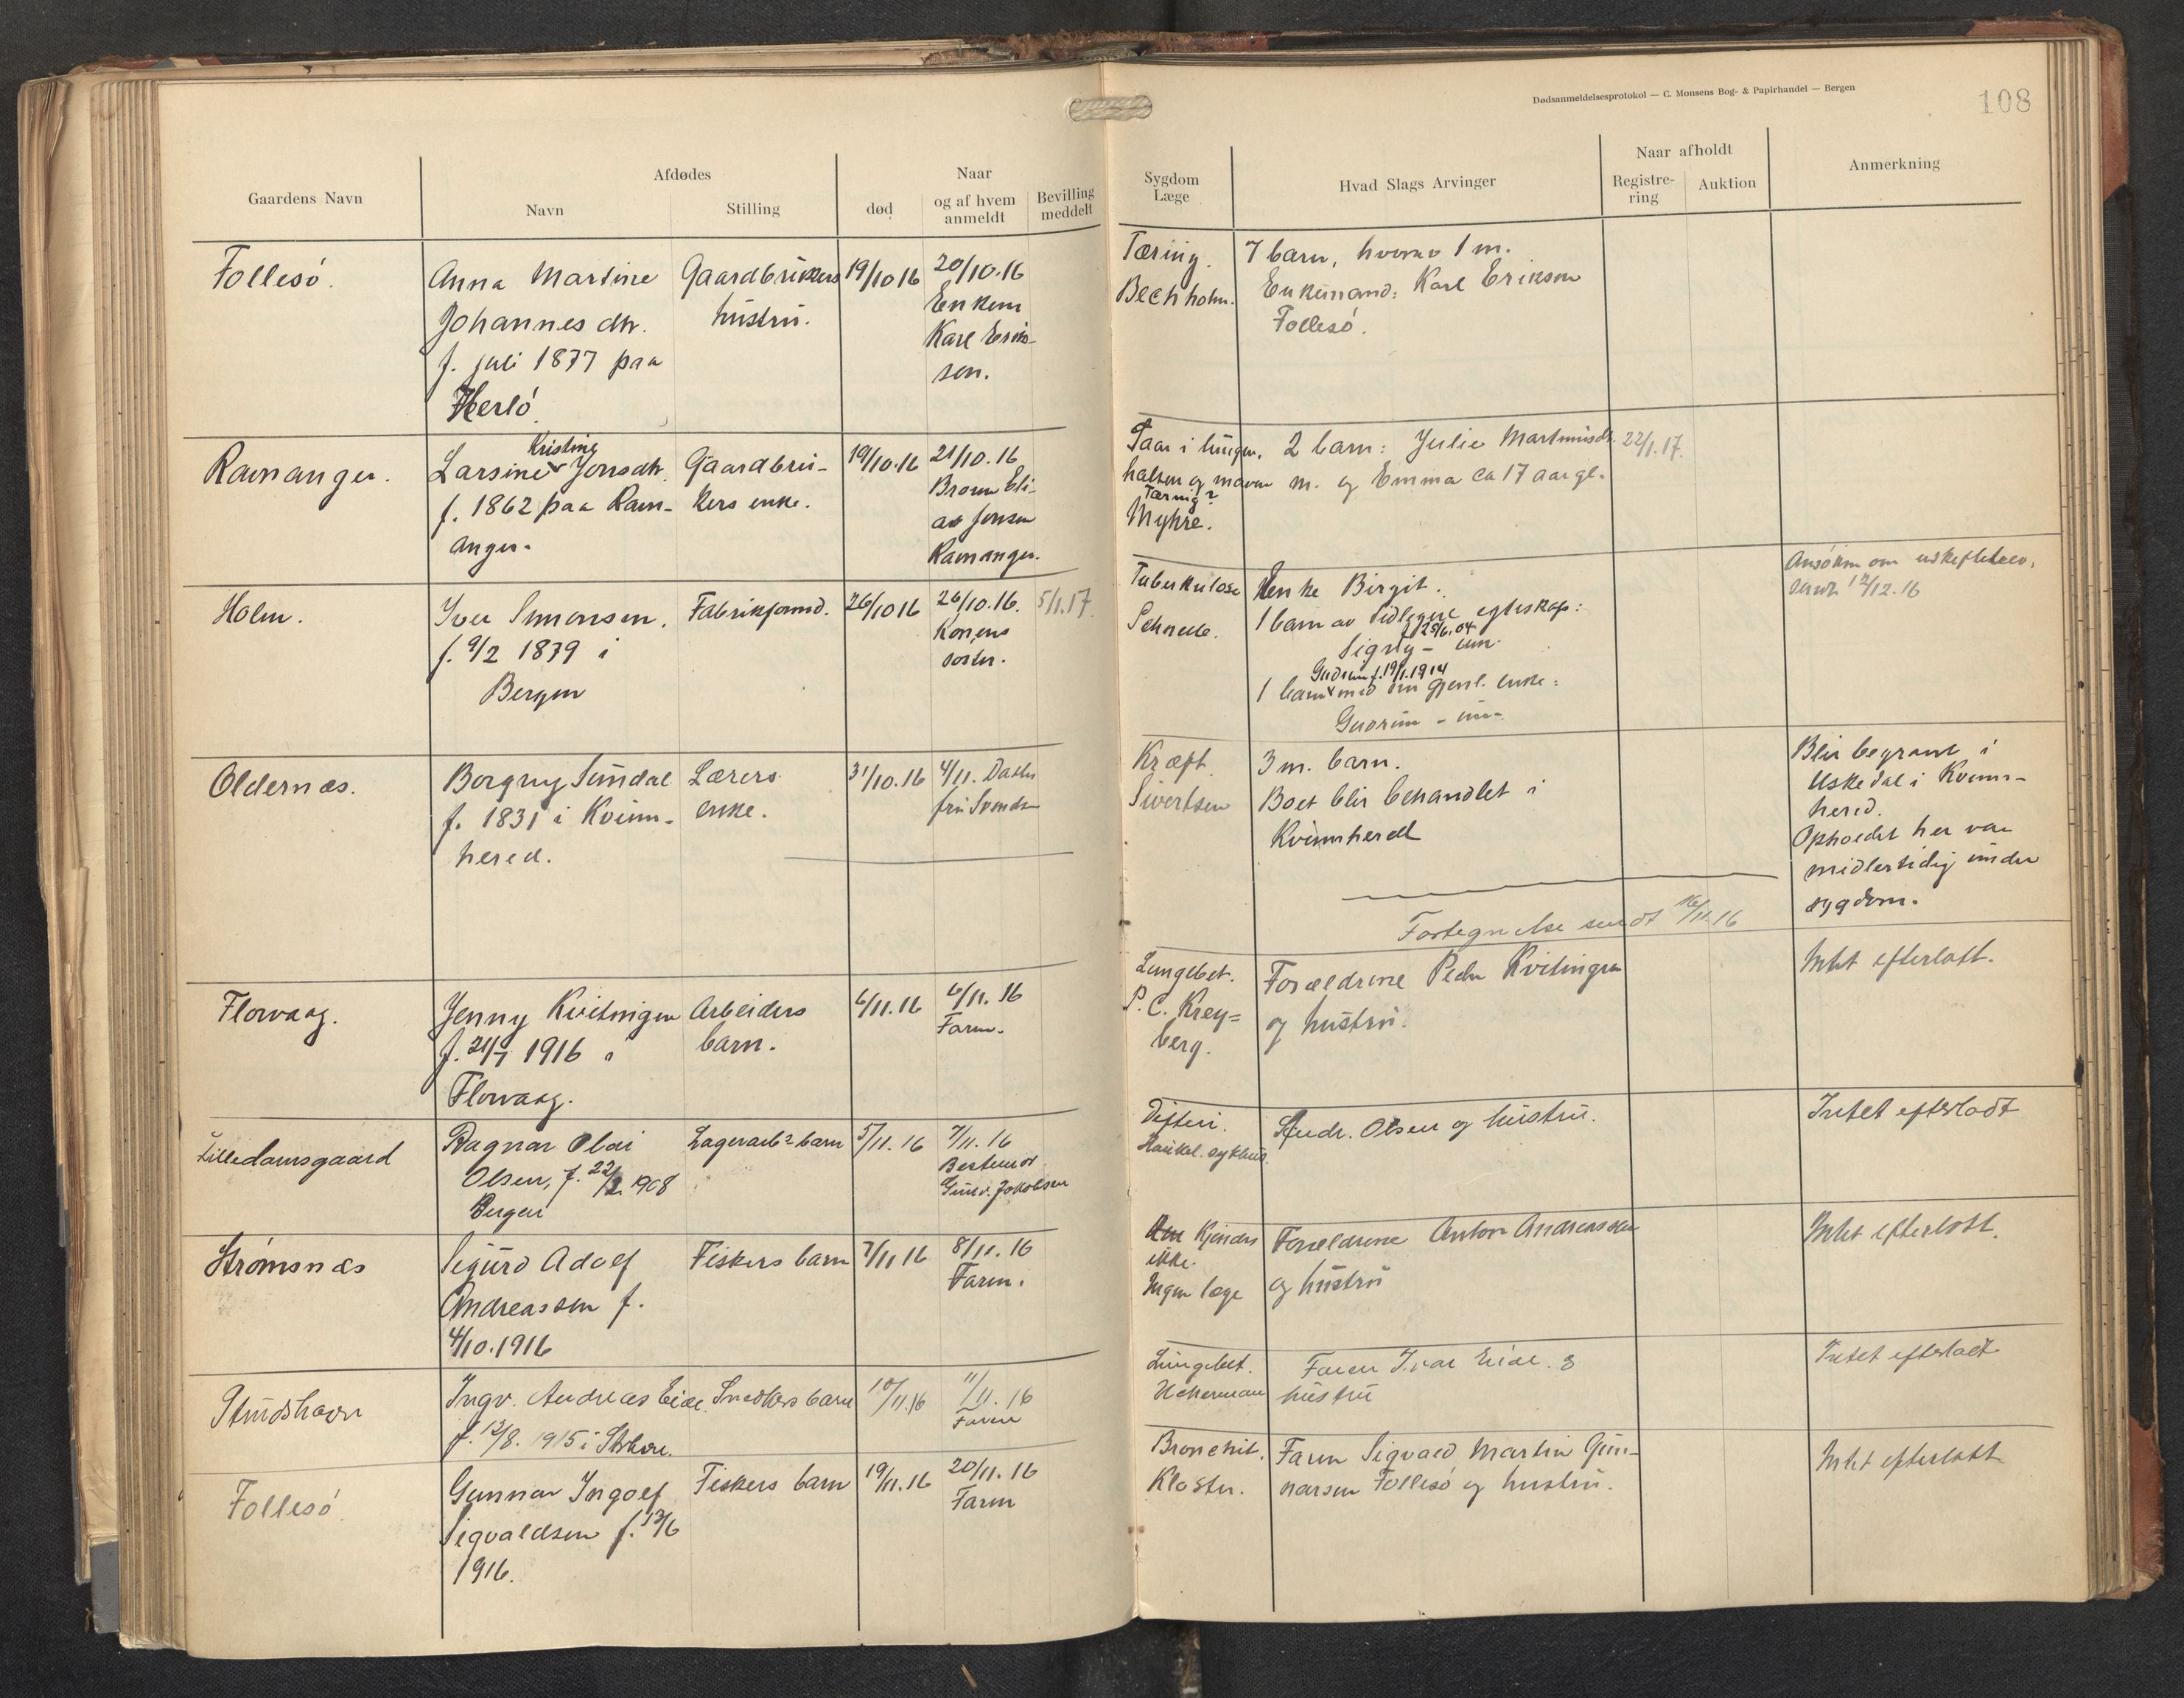 Dødsanmeldelsesprotokol — C. Monsens Bog- & Papirhandel — Bergen
108
Gaardens Navn
Afdødes
Navn
Stilling
Naar
død
og af hvem
anmeldt
Bevilling
meddelt
Sygdom
Læge
Hvad Slags Arvinger
Naar afholdt
Registre-
ring
Auktion
Anmerkning
Follesø.
Anna Martine
Johannes dtr.
f. juli 1877 paa
Herlø
Gaardbrukers
hustru.
19/10 16
20/10.16
Enkem
Karl Erik-
sen.
Tæring.
Bechholm.
7 barn, hvorav 1 m.
Enkemand: Karl Eriksen
Follesø.
Ramanger.
Kristine
Larsine Jonsdtr.
f. 1862 paa Ram-
anger.
Gaardbru-
kers enke.
19/10.16
21/10.16
Broren Eli-
as Jensen
Ramanger.
Saar i lungen,
halsen og maven
Tæring?
Myhre.
2 barn: Julie Martinusdtr.
m. og Emma ca 17 aar gl.
22/1.17.
Holm.
Iver Simonsen.
f. 9/2 1879 i
Bergen
Fabrikformd.
26/10 16
26/10.16.
Konens
søster.
5/1.17.
Tuberkulose
Schnelle.
Enke Birgit.
1 barn av tidligere egteskap:
f 25/6.04
Signy - um.
Gudrun f. 19/1.1914
1 barn med sin gjenl. enke:
Gudrun - um.
Ansøkn om uskiftebev.
sendt 12/12.16
Oldernæs.
Borgny Sundal
f. 1831 i Kvinn-
hered.
Lærers
enke.
31/10.16
4/11. Datter
fru Svendsen
Kræft.
Sivertsen
3 m. barn.
Boet blir behandlet i
Kvinnhered
Blir begravet i
Uskedal i Kvinn-
hered.
Opholdet her var
midlertidig under
sygdom.
Fortegnelse sendt 16/11.16
Florvaag.
Jenny Kvitingen
f. 21/7 1916 i
Florvaag.
Arbeiders
barn.
6/11.16
6/11.16
Faren.
Lungebet.
P. C. Krey=
berg.
Forældrene Peder Kvitingen
og hustru.
Intet efterlatt.
Lilledamsgaard
Ragnar Olai
Olsen, f. 22/2 1908
Bergen
Lagerarbs barn
5/11.16
7/11.16
Bestemor
Gurv. Jakobsen
Difteri.
Haukel. sykhus.
Andr. Olsen og hustru.
Intet efterladt
Strømsnæs
Sigurd Adolf
Andreassen f.
4/10.1916
Fiskers barn
7/11 16
8/11.16
Faren.
Kjendes
ikke.
Ingen læge
Forældrene Anton Andreassen
og hustru
Intet efterlatt.
Strudshavn
Ingv. Andreas Eide
f. 12/8. 1915 i Strhvn.
Snedkers barn
10/11.16
11/11.16
Faren
Lungebet.
Uckermann
Faren Ivar Eide. &
hustru
Intet efterladt
Follesø
Gunnar Ingolf
Sigvaldsen f. 13/6
1916.
Fiskers barn
19/11.16
20/11.16
Faren
Bronchit.
Kloster.
Faren Sigvald Martin Gun-
narsen Follesø og hustru.
Intet efterlatt